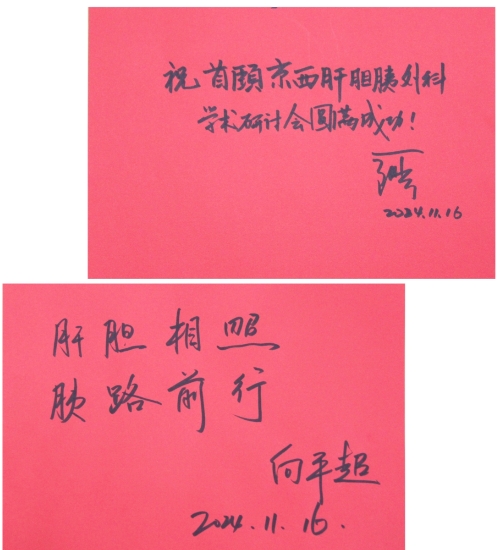 祝首颐京西肝胆胰外科
学术研讨会圆满成功!
2024.11.16
肝胆相照
胰路前行
向平超
2024.11.16.